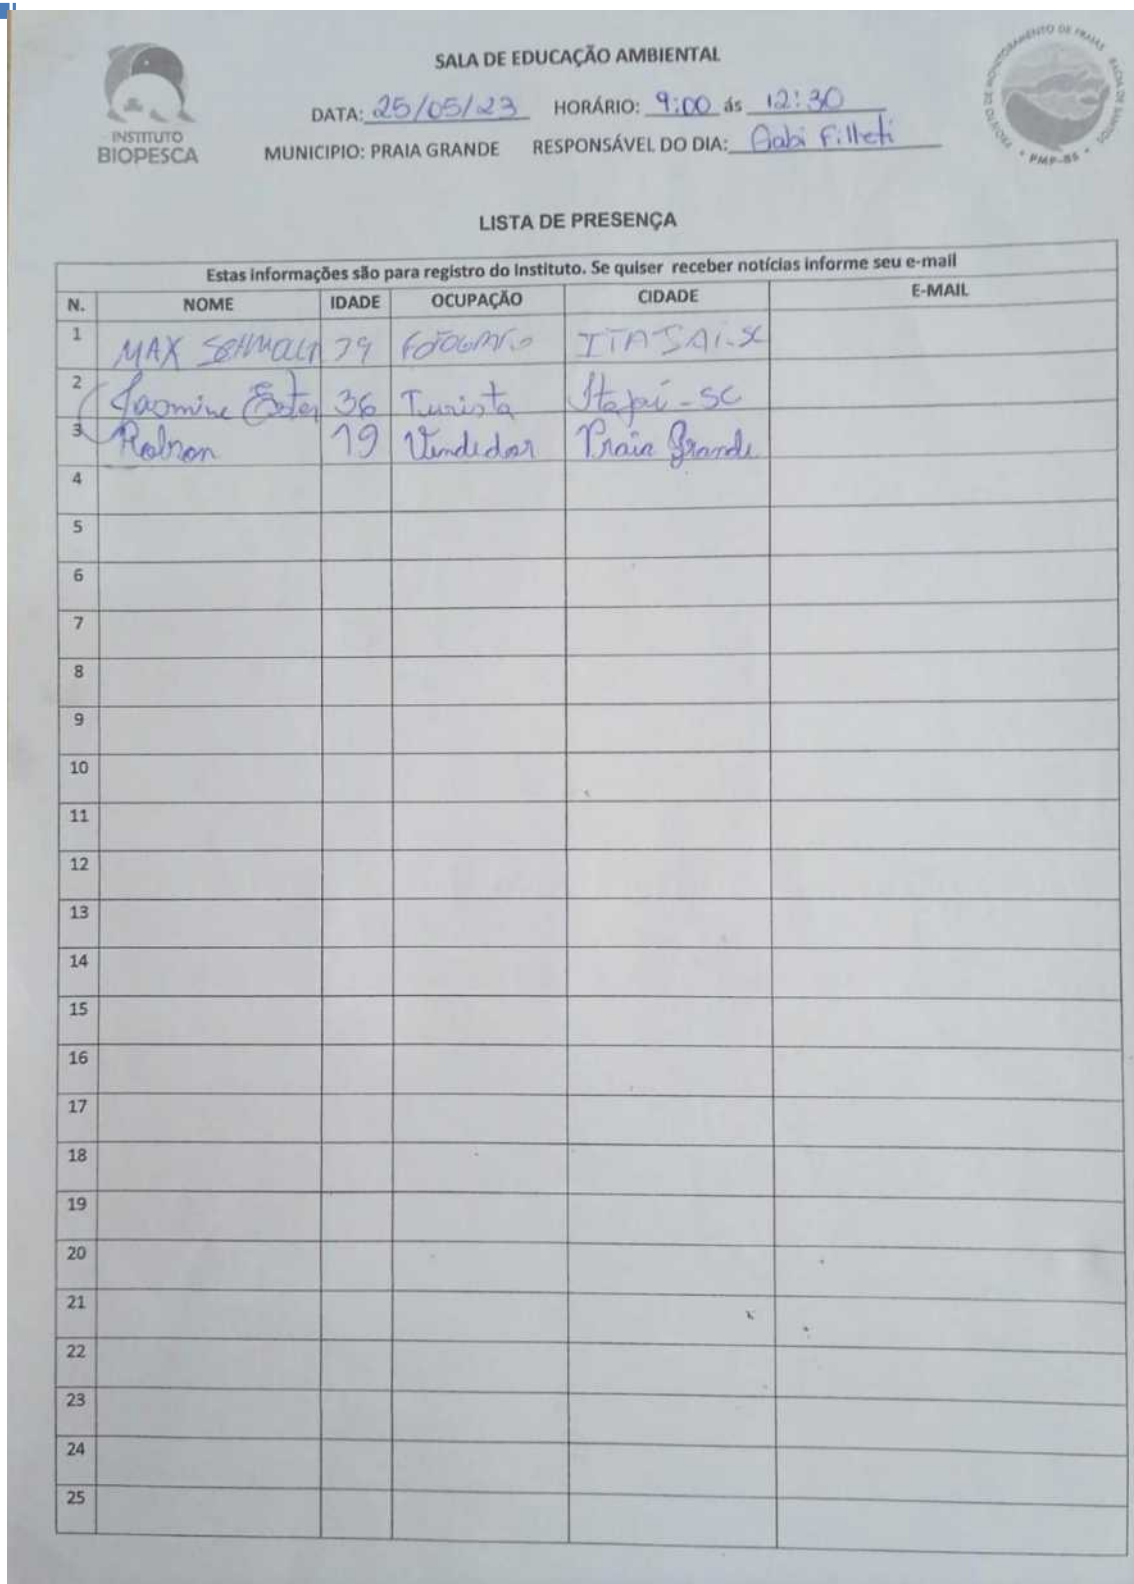 SALA DE EDUCAÇÃO AMBIENTAL
DATA: 25/05/23 HORÁRIO: 9:00 ás 12:30
MUNICIPIO: PRAIA GRANDE RESPONSÁVEL DO DIA: Gabi Filleti
INSTITUTO
BIOPESCA
PROJETO DE MONITORAMENTO DE PRAIAS BACIA DE SANTOS
PMP-BS
LISTA DE PRESENÇA
Estas informações são para registro do Instituto. Se quiser receber notícias informe seu e-mail
N. NOME IDADE OCUPAÇÃO CIDADE E-MAIL
1 MAX 79 FOTÓGRAFO ITAJAI-SC
2 Jasmine Ester 36 Turista Itajaí-SC
3 Robson 19 Vendedor Praia Grande
4
5
6
7
8
9
10
11
12
13
14
15
16
17
18
19
20
21
22
23
24
25